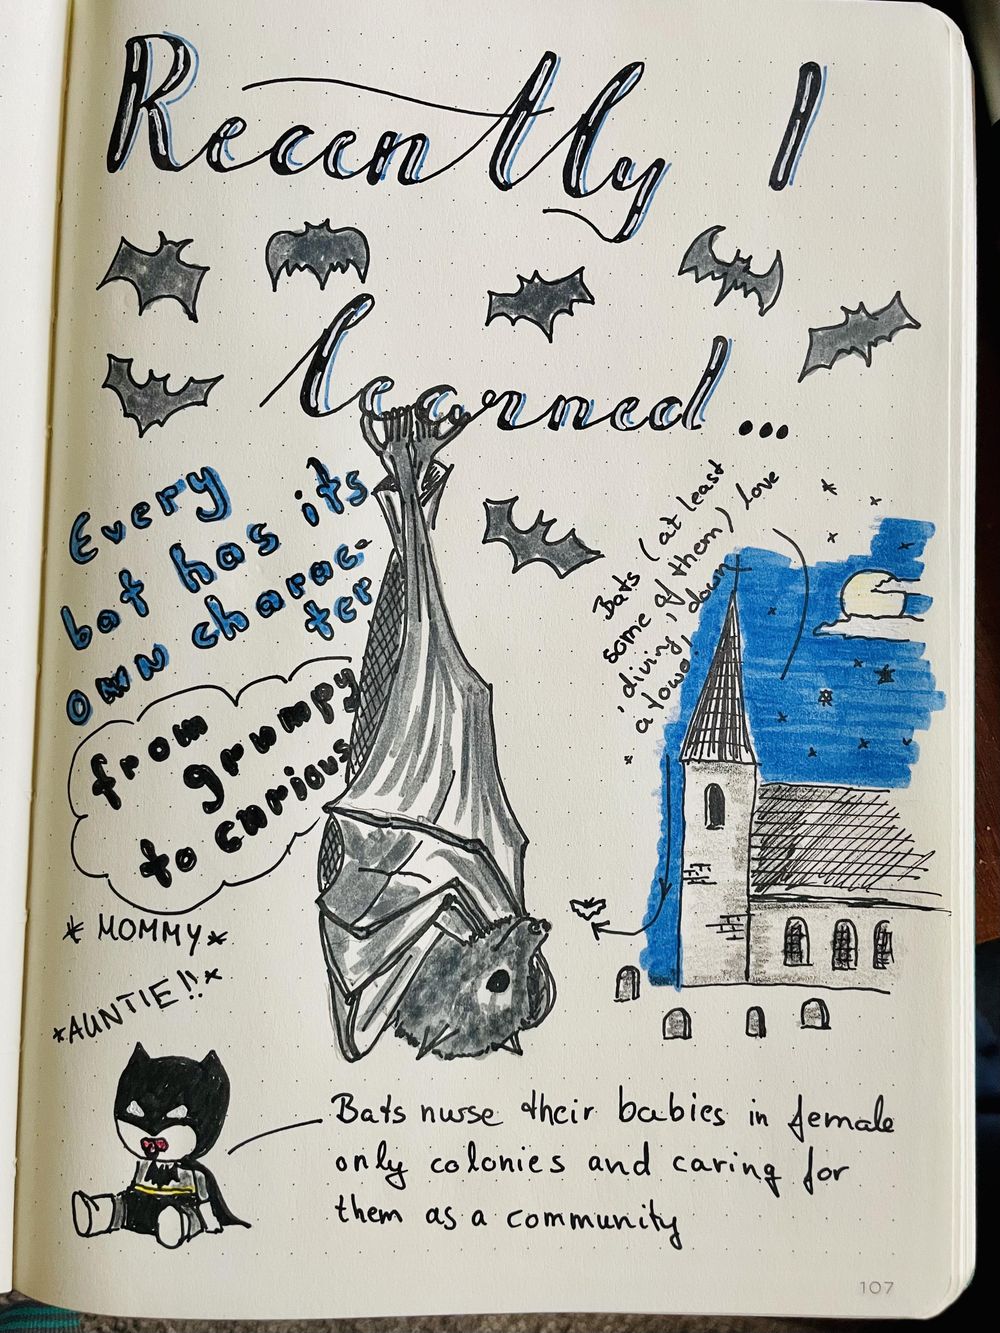 Recently I
learned...
Every
bat has its
own charac-
ter
from
grumpy
to curious
Bats (at least
some of them) love
'diving' down
a tower
* MOMMY *
* AUNTIE!! *
Bats nurse their babies in female
only colonies and caring for
them as a community
107